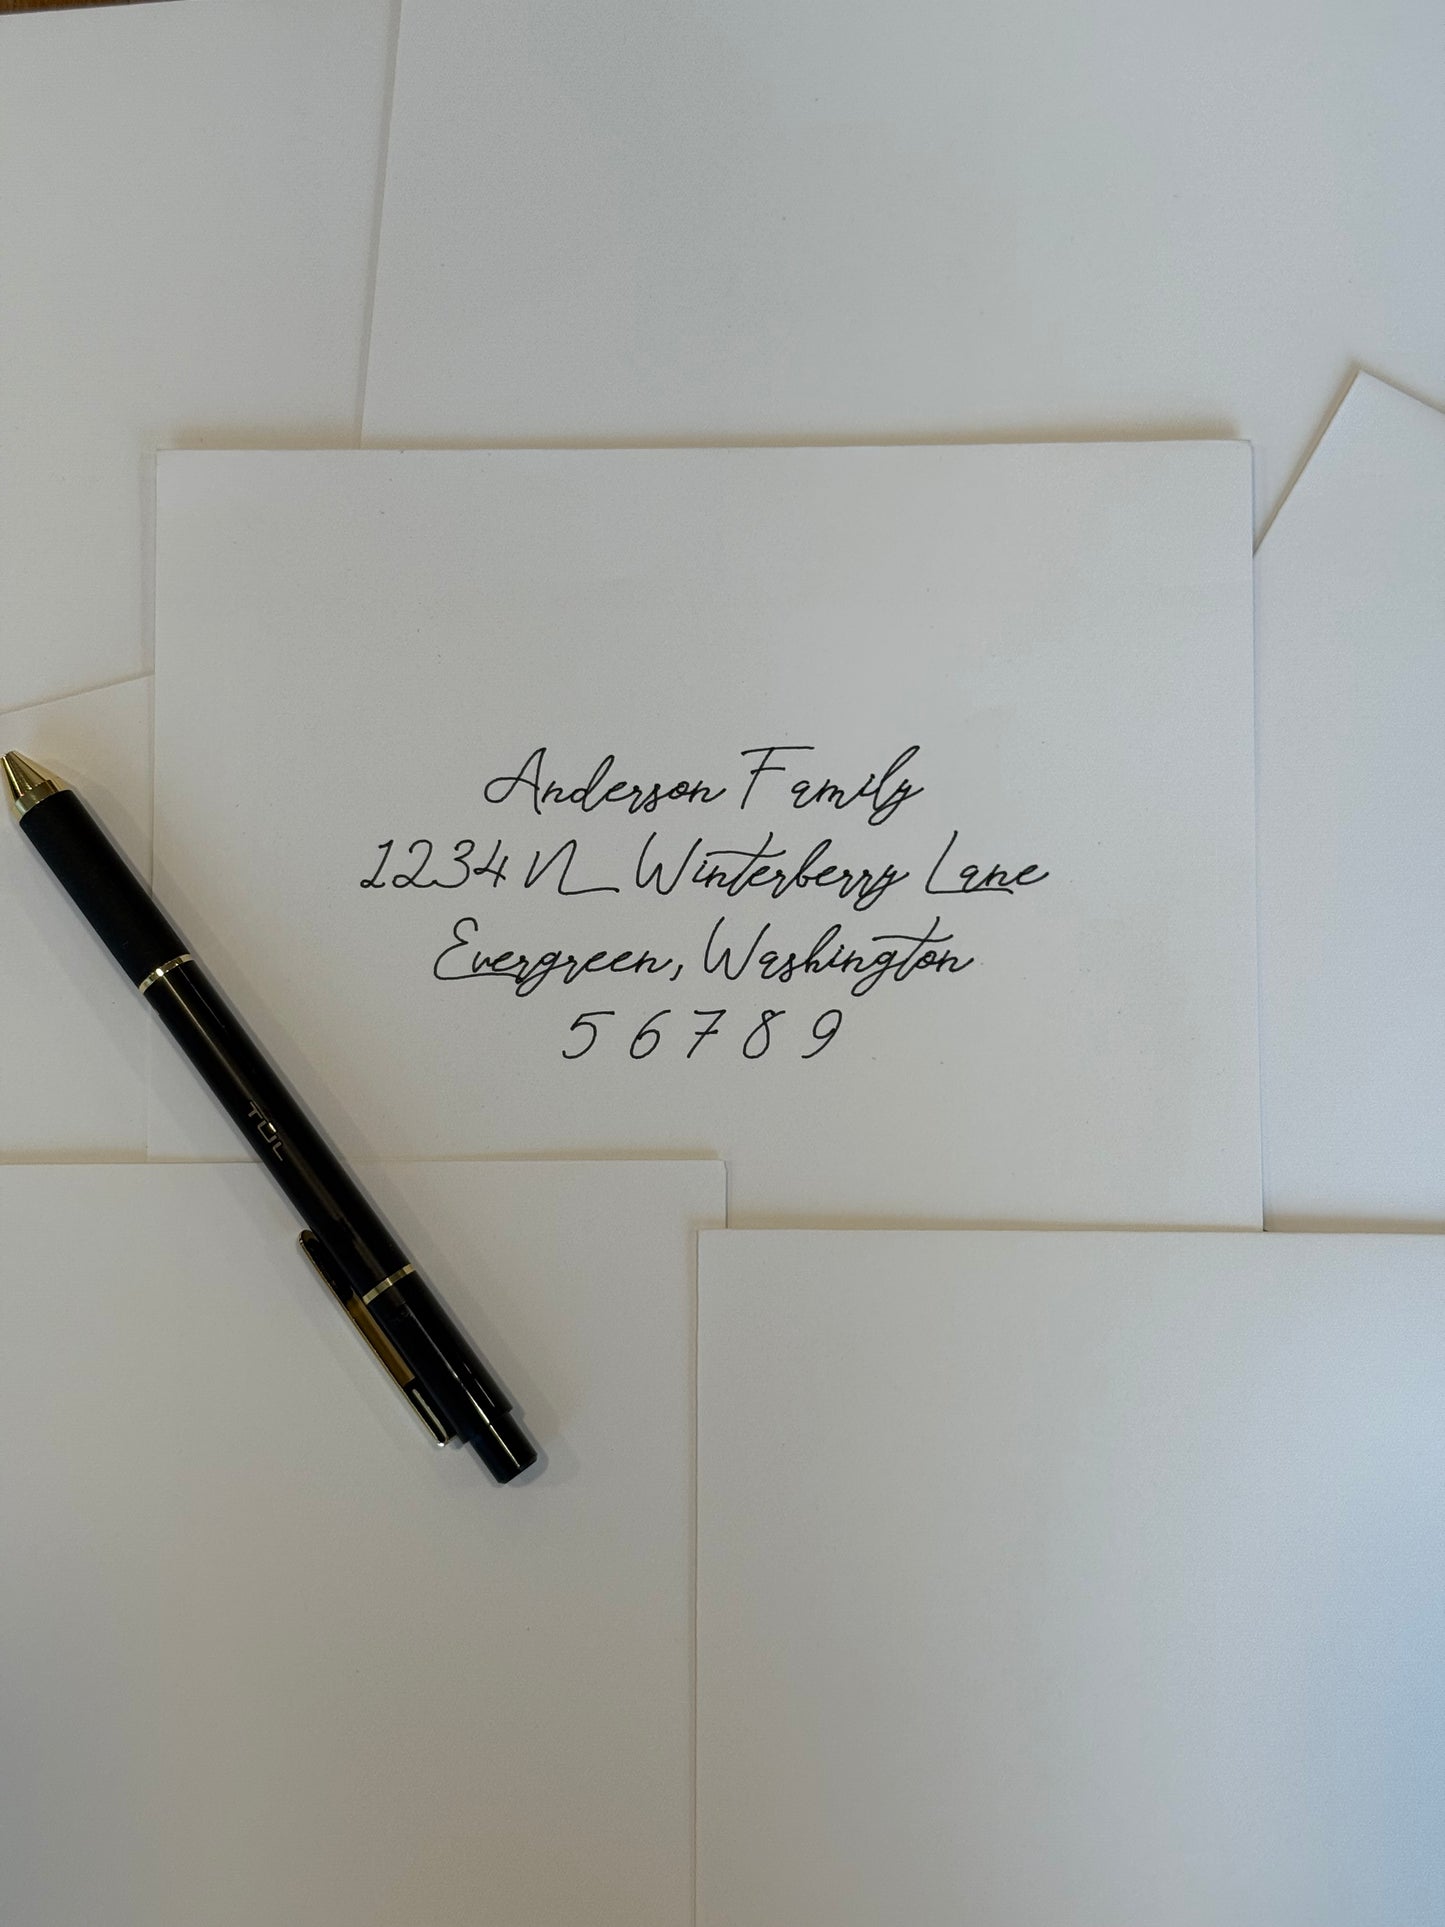 Anderson Family
1234 N Winterberry Lane
Evergreen, Washington
56789
TUL